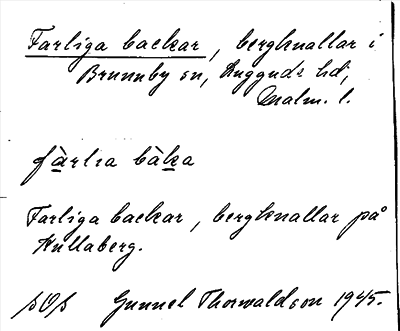 Farliga backar, bergknallar i
Brunnby sn, Luggude hd,
Malm. l.
fàrlıa bàka
Farliga backar, bergknallar på
Kullaberg.
Gunnel Thorwaldson 1945.